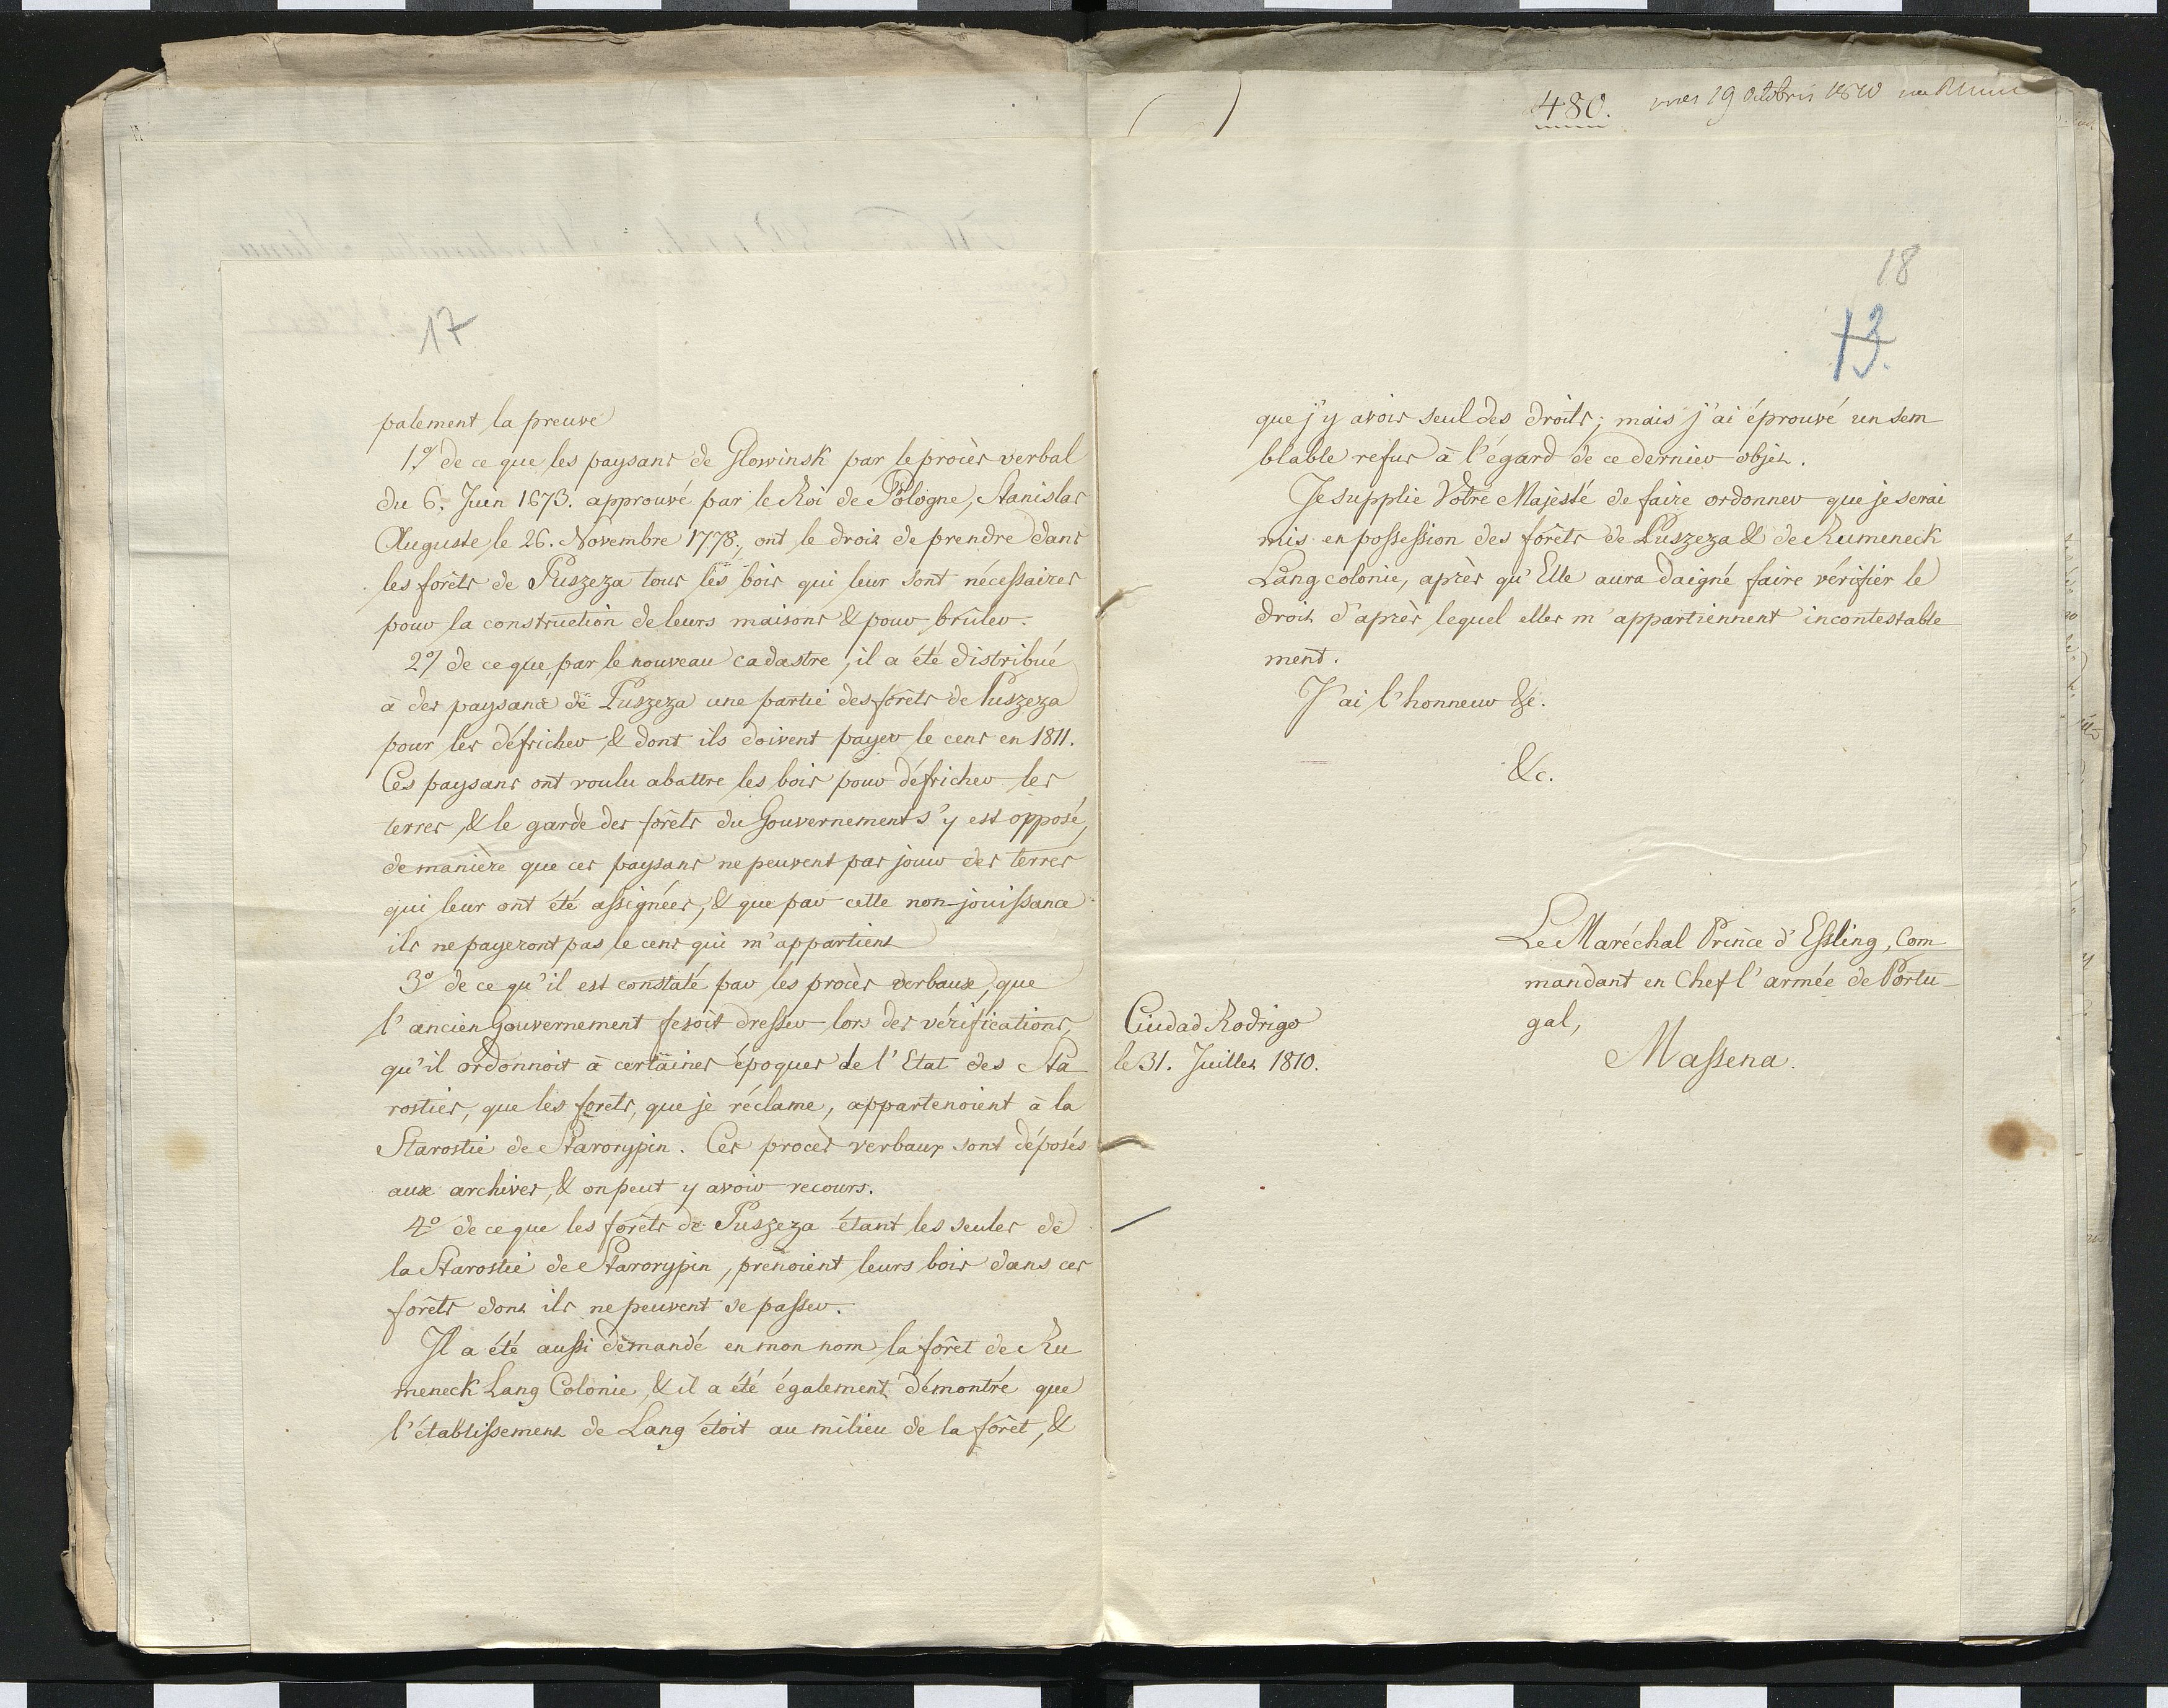 17
palement la preuve
1.º de ce que les paysans de Glowinsk par le procès verbal
du 6. Juin 1673. approuvé par le Roi de Pologne, Stanislas
Auguste le 26. Novembre 1778, ont le droit de prendre dans
les forêts de Puszeza tous les bois qui leur sont nécessaires
pour la construction de leurs maisons & pour brûler.
2º de ce que, par le nouveau cadastre, il a été distribué
à des paysans de Puszeza une partie des forêts de Puszeza
pour les défricher, & dont ils doivent payer le cens en 1811.
Ces paysans ont voulu abattre les bois pour défricher les
terres, & le garde des forêts du Gouvernement s'y est opposé,
de manière que ces paysans ne peuvent pas jouir des terres
qui leur ont été assignées, & que par cette non-jouissance
ils ne payeront pas le cens qui m'appartient
3º de ce qu'il est constaté par les procès verbaux, que
l'ancien Gouvernement fesoit dresser lors des vérifications,
qu'il ordonnoit à certaines époques de l'Etat des Sta
rosties, que les forets, que je réclame, appartenoient à la
Starostie de Starorypin. Ces procès verbaux sont déposés
aux archives, & on peut y avoir recours.
4º de ce que les forêts de Puszeza étant les seules de
la Starostie de Starorypin, prenoient leurs bois dans ces
forêts dont ils ne peuvent se passer.
Il a été aussi demandé en mon nom la forêt de Ru
meneck Lang Colonie, & il a été également démontré que
l'établissement de Lang étoit au milieu de la forêt, &
480. 19 Octobris 1810
18
13.
que j'y avois seul des droits; mais j'ai éprouvé un sem
blable refus à l'égard de ce dernier objet.
Je supplie Votre Majesté de faire ordonner que je serai
mis en possession des forêts de Puszeza & de Rumeneck
Lang colonie, après qu'Elle aura daigné faire vérifier le
droit d'après lequel elles m'appartiennent incontestable
ment.
J'ai l'honneur &c.
&c.
Le Maréchal Prince d'Essling, Com
mandant en Chef l'armée de Portu-
gal,
Massena.
Ciudad Rodrigo
le 31. Juillet 1810.